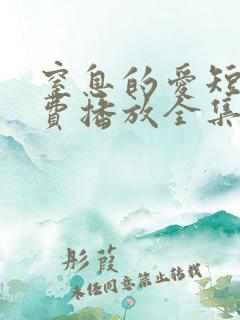 窒息的爱短
费播放全集
彤葭
未经同意禁止转载